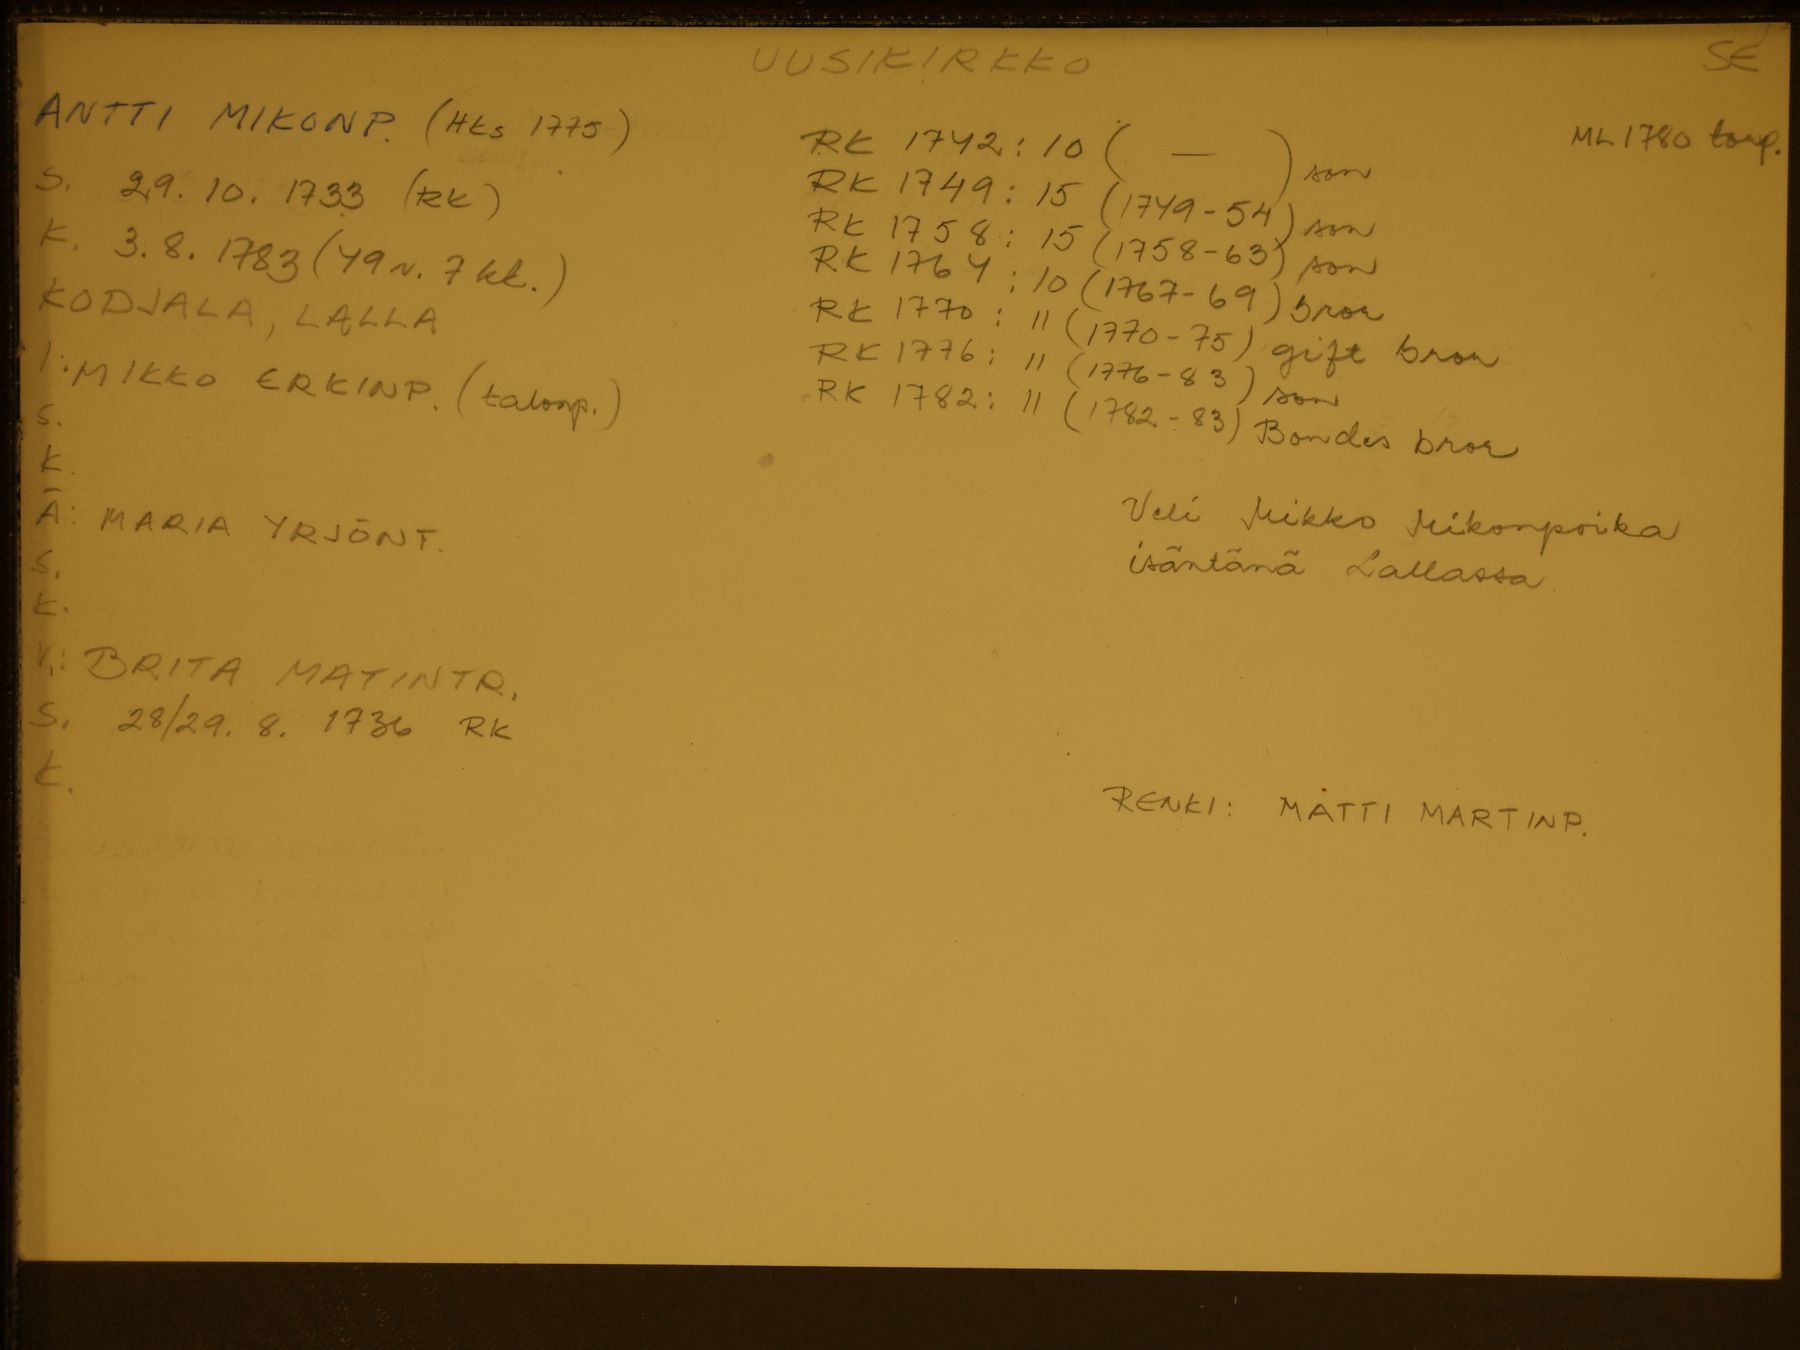 UUSIKIRKKO
SE
ANTTI MIKONP. (HKs 1775)
S. 29. 10. 1733 (RK)
K. 3. 8. 1783 (49 v. 7 kk.)
KODJALA, LALLA
I: MIKKO ERKINP. (talonp.)
S.
K.
Ä: MARIA YRJÖNT.
S.
K.
V: BRITA MATINTR.
S. 28/29. 8. 1736 RK
K.
ML 1780
RK 1742: 10 ( — ) son
RK 1749: 15 (1749-54) son
RK 1758: 15 (1758-63) son
RK 1764: 10 (1767-69) bror
RK 1770: " (1770-75) gift bror
RK 1776: " (1776-83) son
RK 1782: " (1782-83) Bondes bror
Veli Mikko Mikonpoika
isäntänä Lallassa.
RENKI: MATTI MARTINP.